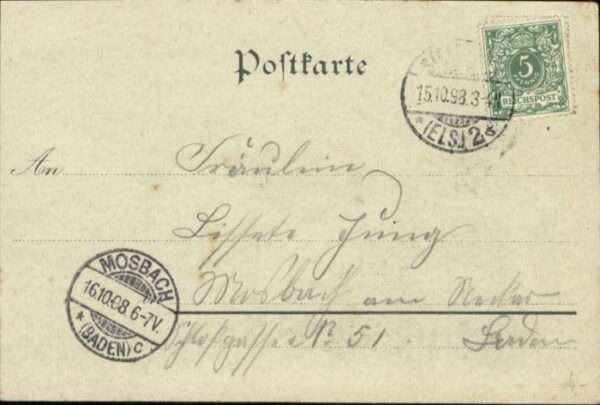 Postkarte
15.10.98.3-4
(ELS.) 2 c
5
REICHSPOST
An Fräulein
Lissete Jung
Mosbach am Neckar
Schloßgasse No 51. Baden
MOSBACH
16.10.98.6-7V.
(BADEN) c